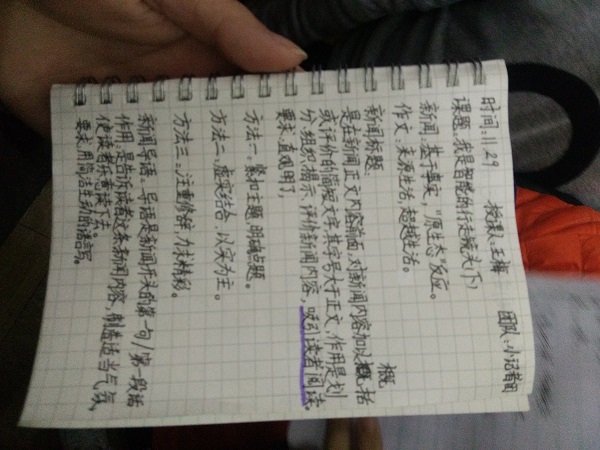 时间:11.29 授课人:王梅 团队:小记者团
课题:我是智慧的行走镜头(下)
新闻:基于事实,"原生态"反应。
作文:来源生活,超越生活。
概
新闻标题:
是在新闻正文内容前面,对新闻内容加以概括
或评价的简短文字,其字号大于正文,作用是划
分、组织、揭示、评价新闻内容,吸引读者阅读。
要求:直观明了,
方法一、紧扣主题,明确点题。
方法二、虚实结合,以实为主。
方法三、注重修辞,力求精彩。
新闻导语:导语是新闻开头的第一句/第一段话
作用:是告诉读者这条新闻内容,制造适当气氛,
使读者乐意读下去。
要求:用简洁生动的话写。